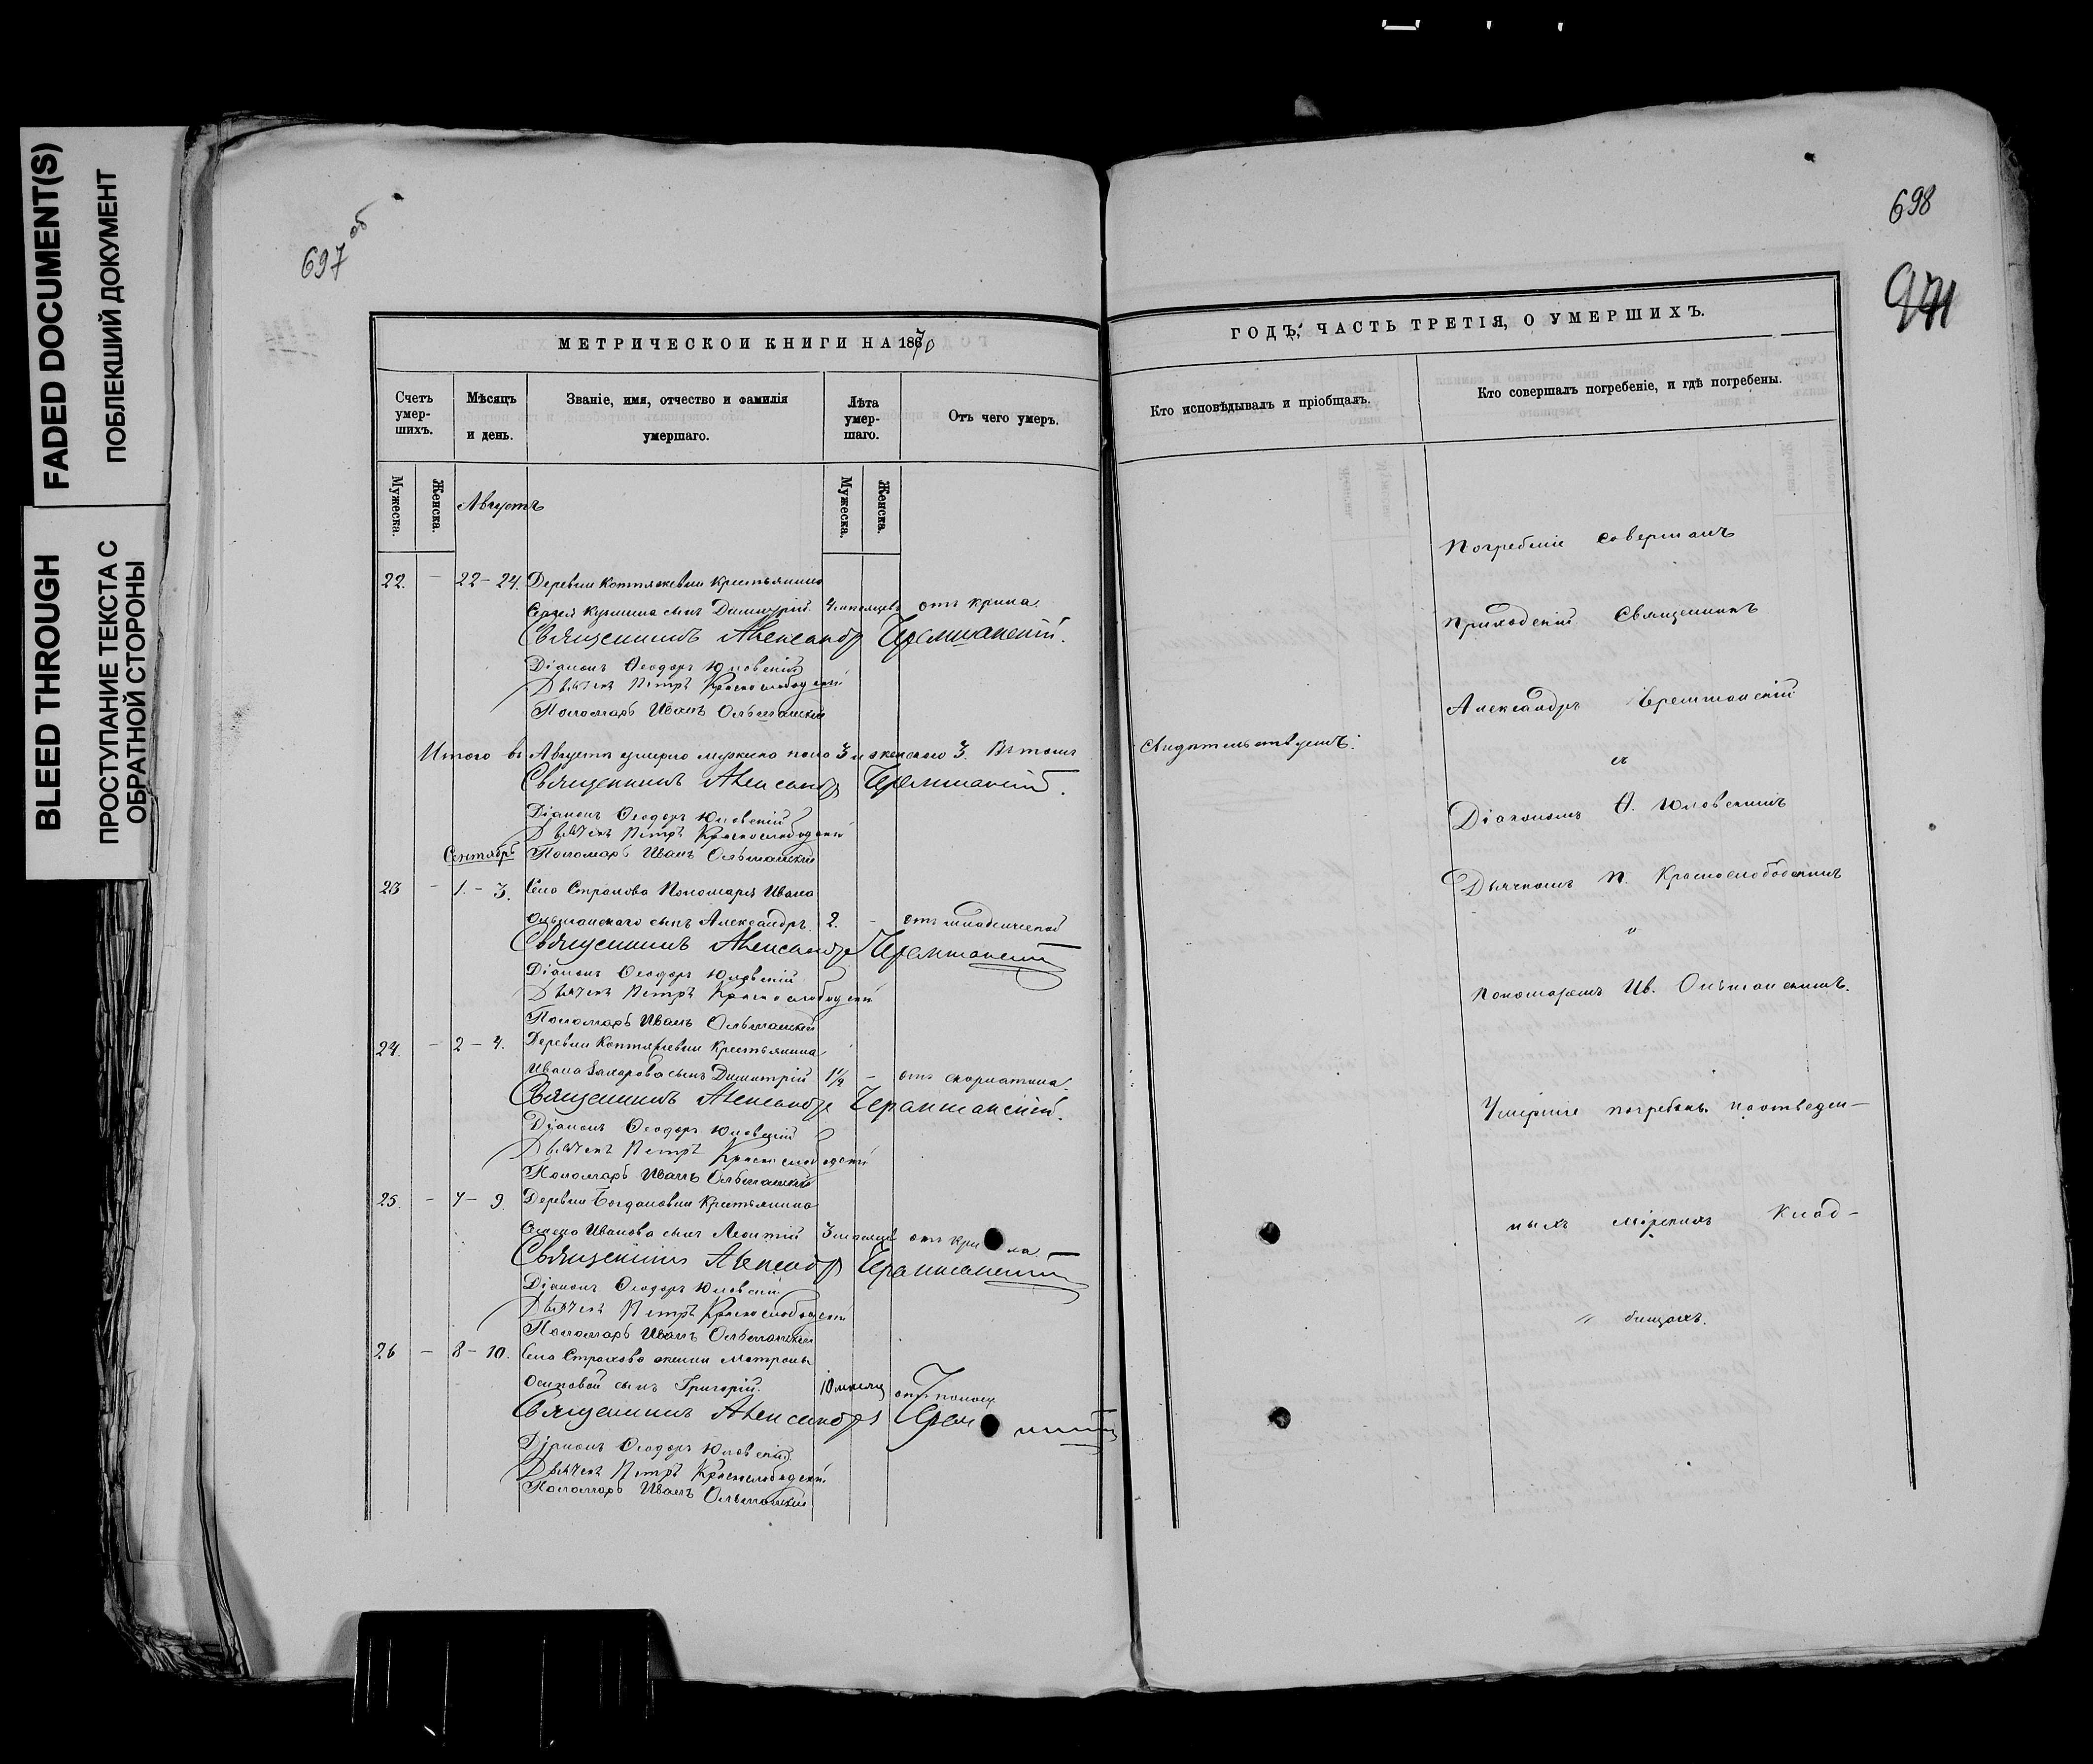 FADED DOCUMENT(S)
ПОБЛЕКШИЙ ДОКУМЕНТ
BLEED THROUGH
ПРОСТУПАНИЕ ТЕКСТА С
ОБРАТНОЙ СТОРОНЫ
697 об
МЕТРИЧЕСКОИ КНИГИ НА 1870
Счетъ умер-шихъ.
Мѣсяцъ и день.
Званіе, имя, отчество и фамилія умершаго.
Лѣта умер-шаго.
Отъ чего умеръ.
Мужеска.
Женска.
Мужеска.
Женска.
Августъ
22. — 22 – 24. Деревни крестьянина
Сергея Кузмина сынъ Димитрій. отъ крика.
Священникъ Александръ Черемшанскій.
Діаконъ Ѳеодоръ Юловскій
Дьячекъ Петръ Краснослободскій
Пономарь Иванъ Ольшанскій
Итого въ Августѣ умерло мужеска пола 3 и женскаго 3. Въ томъ
Священникъ Александръ Черемшанскій.
Діаконъ Ѳеодоръ Юловскій
Дьячекъ Петръ Краснослободскій
Сентябрь Пономарь Иванъ Ольшанскій
23 – 1. – 3. Села Страхова Пономаря Ивана
Ольшанскаго сынъ Александръ. 2. – отъ младенческой
Священникъ Александръ Черемшанскій
Діаконъ Ѳеодоръ Юловскій
Дьячекъ Петръ Краснослободскій
Пономарь Иванъ Ольшанскій
24. – 2 – 4. Деревни крестьянина
Ивана Захарова сынъ Димитрій 1½ – отъ скорлатина.
Священникъ Александръ Черемшанскій.
Діаконъ Ѳеодоръ Юловскій
Дьячекъ Петръ Краснослободскій
Пономарь Иванъ Ольшанскій
25. – 7 – 9. Деревни Богдановки Крестьянина
Семена Иванова сынъ Леонтій 3 месяцев отъ
Священникъ Александръ Черемшанскій
Діаконъ Ѳеодоръ Юловскій
Дьячекъ Петръ Краснослободскій
Пономарь Иванъ Ольшанскій
26 – 8 – 10. Села Страхова Матроны
Осиповой сынъ Григорій. 10 отъ поносу
Священникъ Александръ
Діаконъ Ѳеодоръ Юловскій
Дьячекъ Петръ Краснослободскій
Пономарь Иванъ Ольшанскій
698
ГОДЪ, ЧАСТЬ ТРЕТІЯ, О УМЕРШИХЪ.
Кто исповѣдывалъ и пріобщалъ.
Кто совершалъ погребеніе, и гдѣ погребены.
свидѣтельствуемъ:
Погребеніе совершалъ
Приходскій Священникъ
Александръ Черемшанскій
съ
Діакономъ Ѳ. Юловскимъ
Дьячкомъ П. Краснослободскимъ
"
Пономаремъ Ив. Ольшанскимъ.
Умершіе погребены на отведен-
ныхъ мірскихъ клад-
" бищахъ.